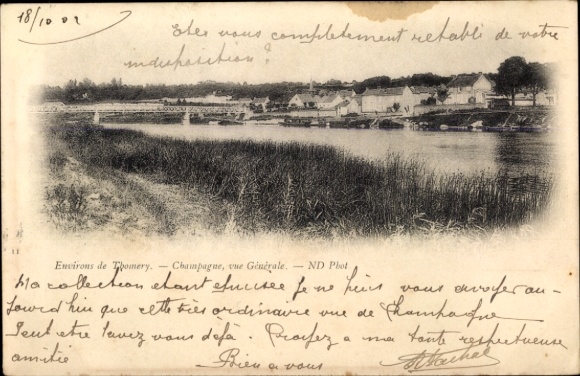 18/10 02
Etes vous completement retabli de votre
indisposition?
Environs de Thomery. — Champagne, vue Générale. — ND Phot
Ma collection etant epuisee je ne puis vous envoyer au-
jourd'hui que cette très ordinaire vue de Champagne
Peut etre l'avez vous déjà. Croyez a ma toute respectueuse
amitié
Bien a vous